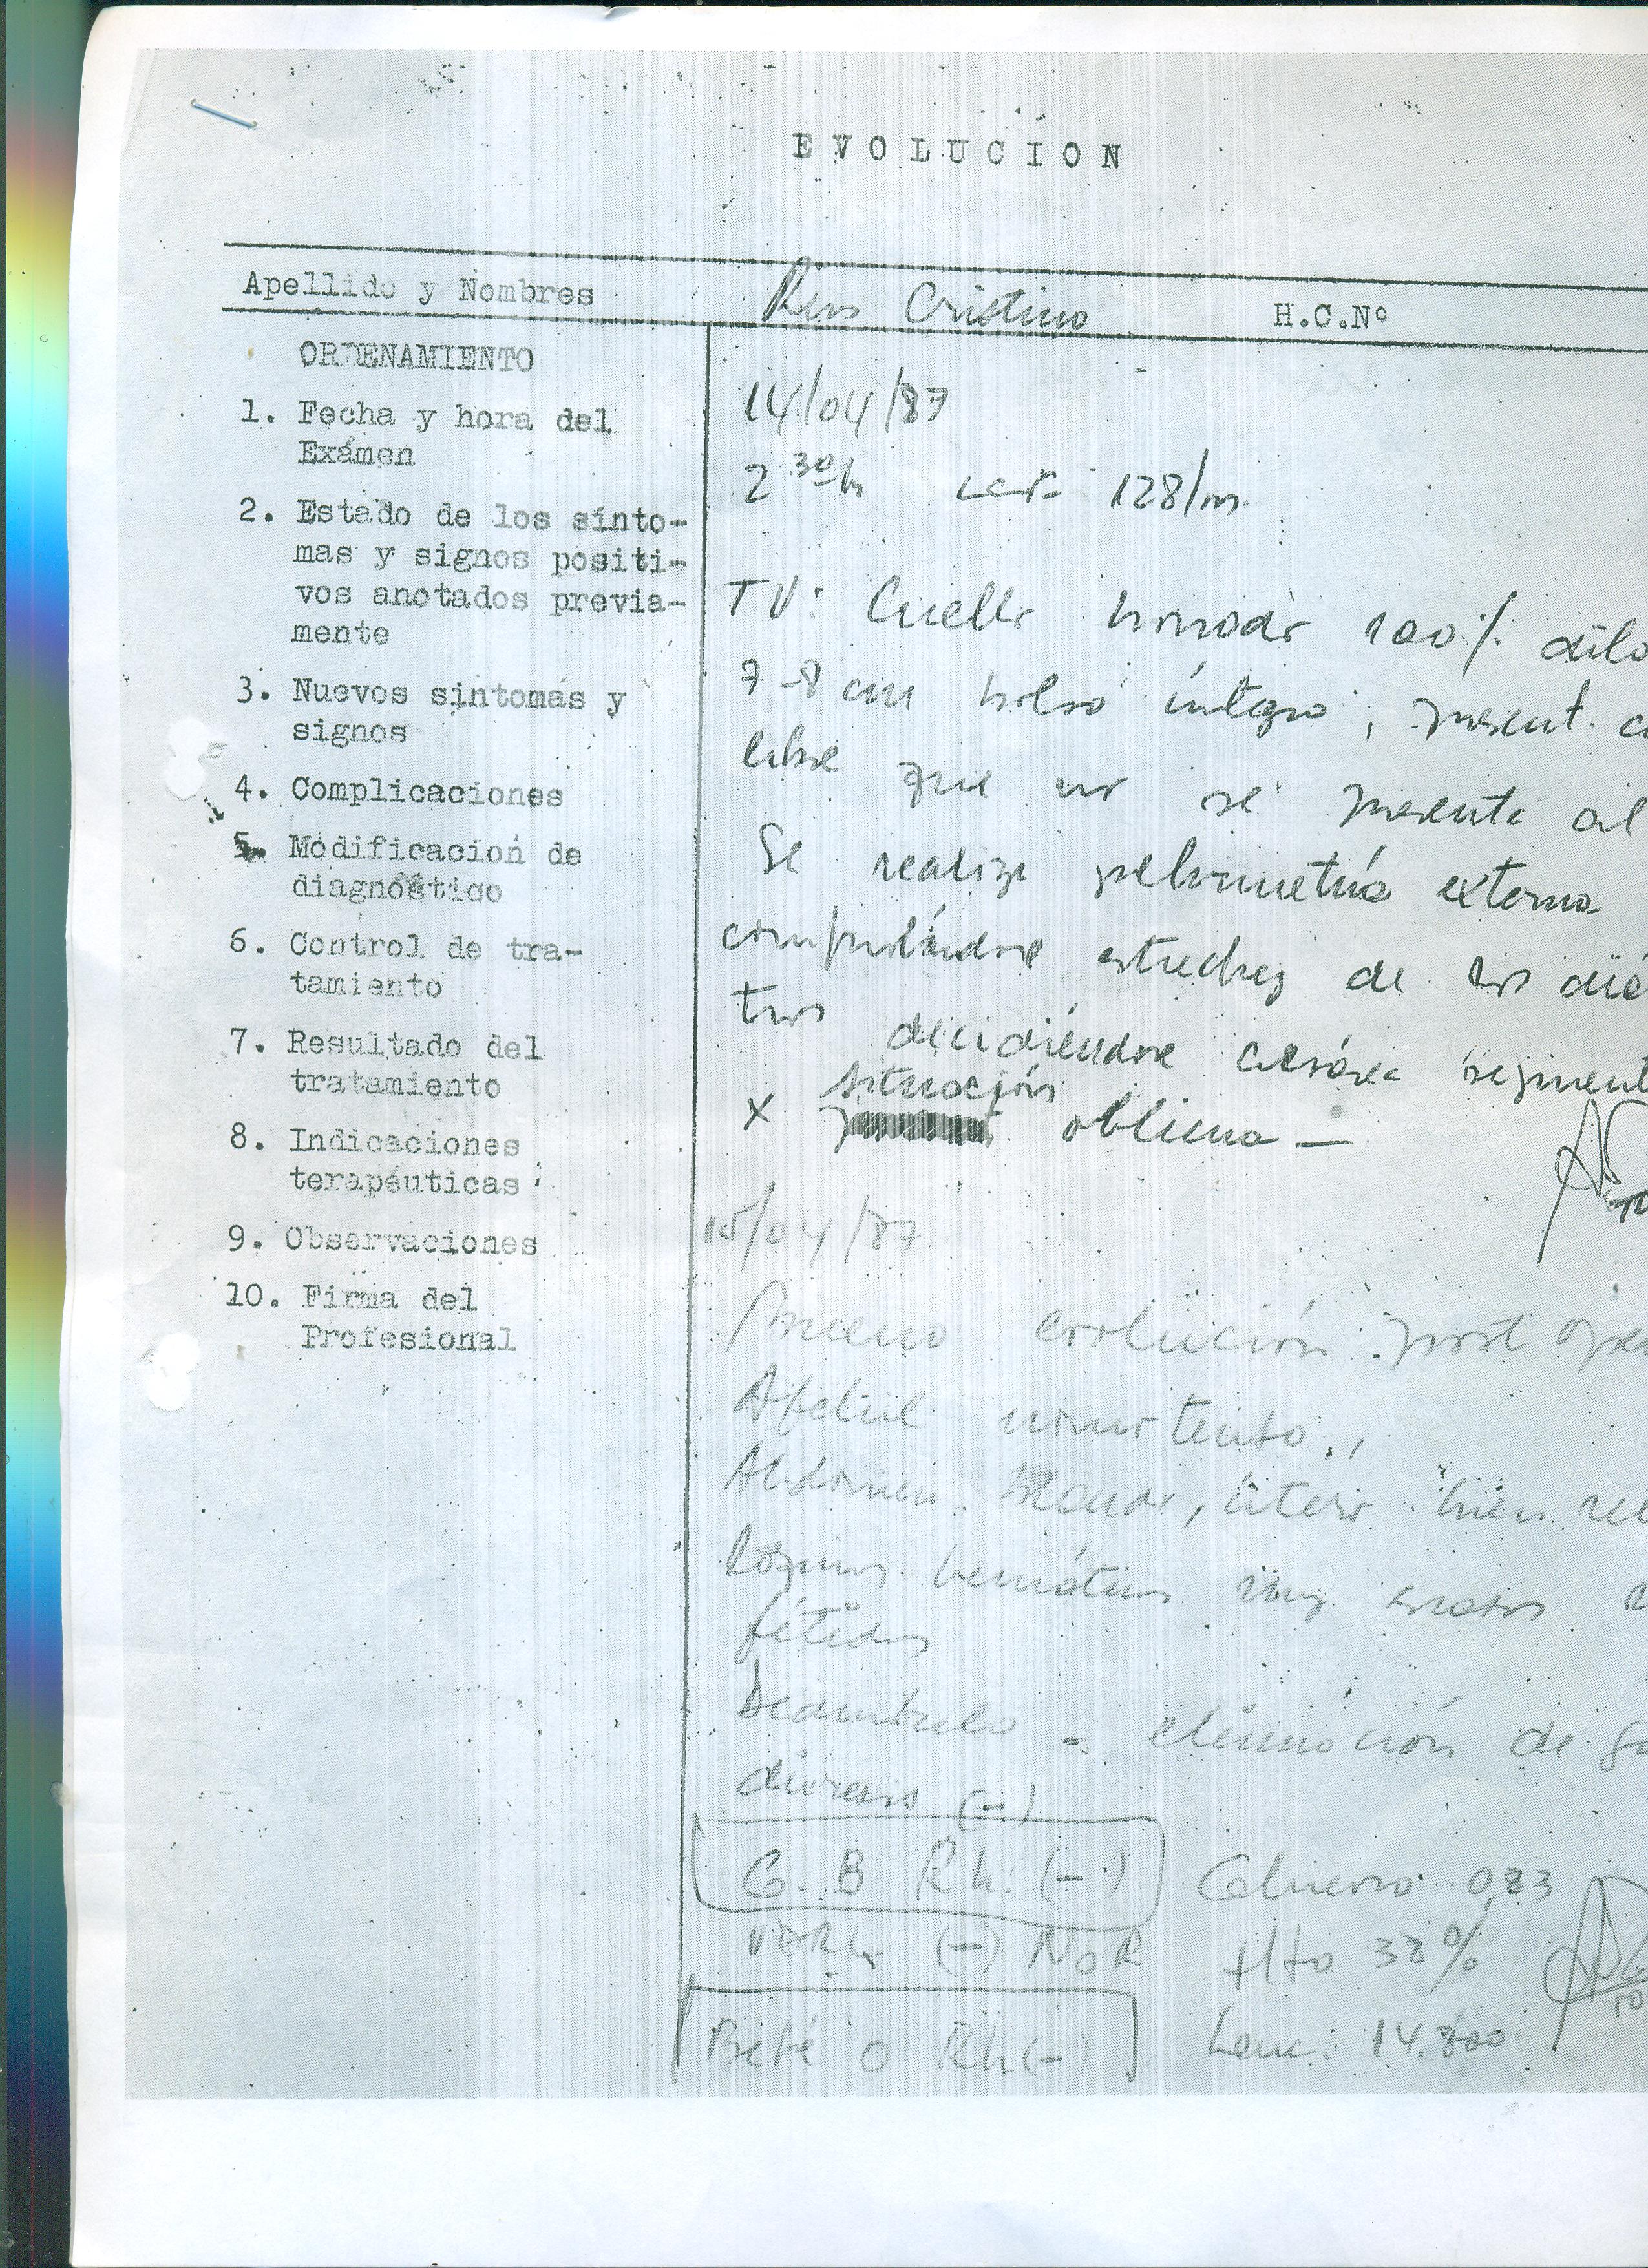 EVOLUCION
Apellido y Nombres Rios Cristina H.C.Nº
ORDENAMIENTO
1. Fecha y hora del
Exámen
2. Estado de los sínto-
mas y signos positi-
vos anotados previa-
mente
3. Nuevos sintomas y
signos
4. Complicaciones
5. Modificación de
diagnóstico
6. Control de tra-
tamiento
7. Resultado del
tratamiento
8. Indicaciones
terapéuticas
9. Observaciones
10. Firma del
Profesional
14/04/87
2 30 h 128/m.
TV: Cuello borrado 100% dila
7-8 cm bolsa íntegra, present. c
libre que no se presenta al
Se realiza pelvimetría externa
comprobándose estrechez de los diá
tros decidiéndose cesárea segment
x situación oblicua —
15/04/87
Buena evolución post ope
Afebril normotensa.,
Abdomen blando, útero bien re
Loquios hemáticos muy escasos
fétidos
Deambula - eliminación de ga
diuresis (-)
G. B Rh: (-) Glucosa 0,83
VDRL (-) NoR Hto 32%
Bebé O Rh(-) Leuc: 14.800